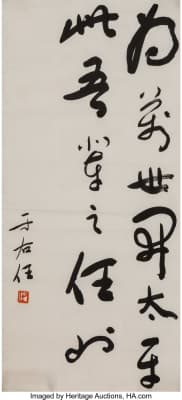 為萬世開太平
此吾輩之任也
于右任
Imaged by Heritage Auctions, HA.com